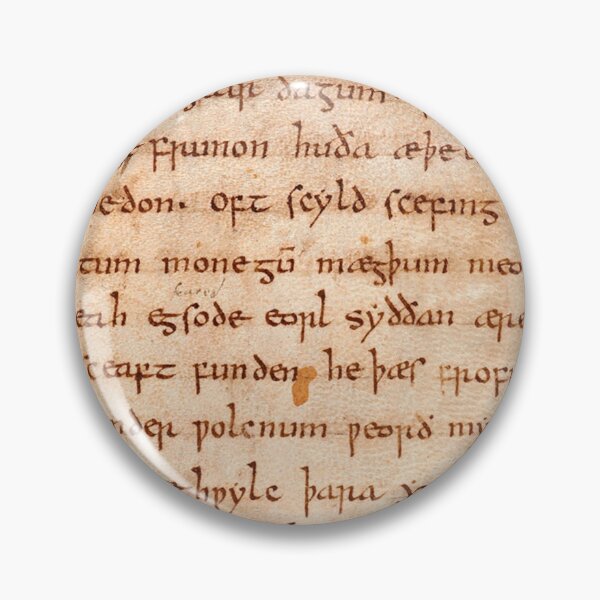 gear dagum
frunon huða æþe
edon. oft scyld scefing
tum monegū mægþum meo
eah egsode eorl syððan ære
sceaft funden he þæs frof
nder ƿolcnum ƿeorð my
hƿylc þara